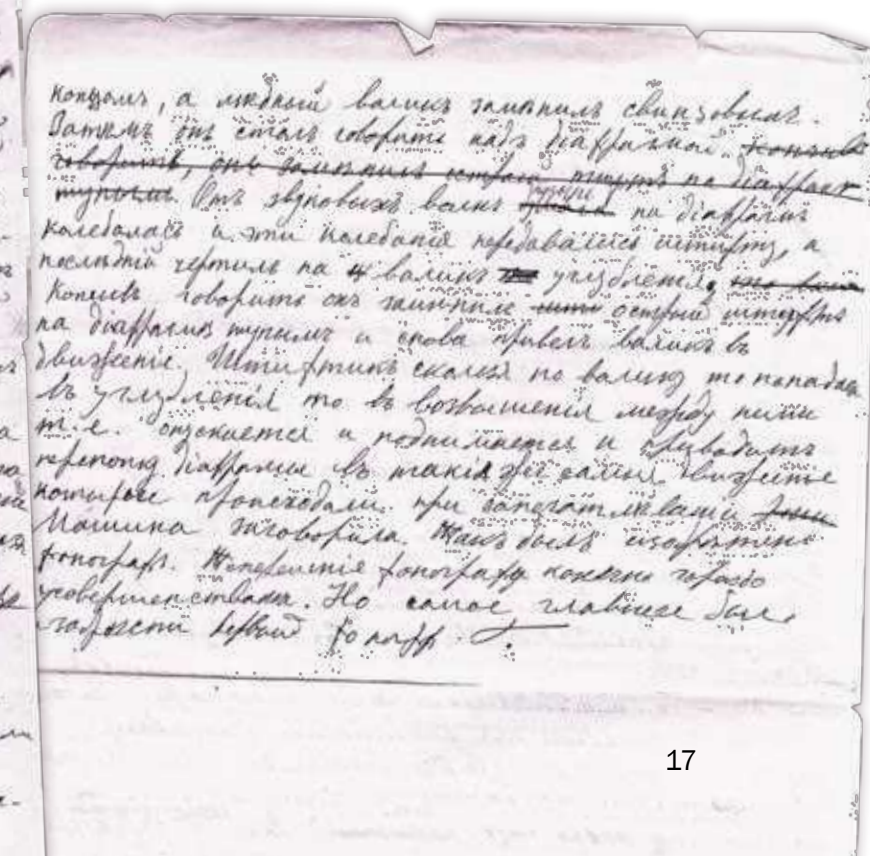 концомъ, а мѣдный валикъ замѣнилъ свинцовымъ.
Затѣмъ онъ сталъ говорить надъ діаффрагмой.
говорить, онъ замѣнилъ острый штифтъ на діаффраг
тупымъ. Отъ звуковыхъ волнъ на діаффрагмѣ
колебалась и эти колебанія передавались штифту, а
послѣдній чертилъ на валикѣ углубленія,
Кончивъ говорить онъ замѣнилъ острый штифтъ
на діаффрагмѣ тупымъ и снова привелъ валикъ въ
движеніе. Штифтикъ скользя по валику то попадалъ
въ углубленія то въ возвышенія между ними
т.е. опускается и поднимается и приводитъ
перепонку діаффрагмы въ такія же самыя движенія
которые происходили при запечатлѣваніи
Машина заговорила. Такъ былъ изобрѣтенъ
фонографъ. фонографъ конечно гораздо
усовершенствованъ. Но самое главное было
первый
17